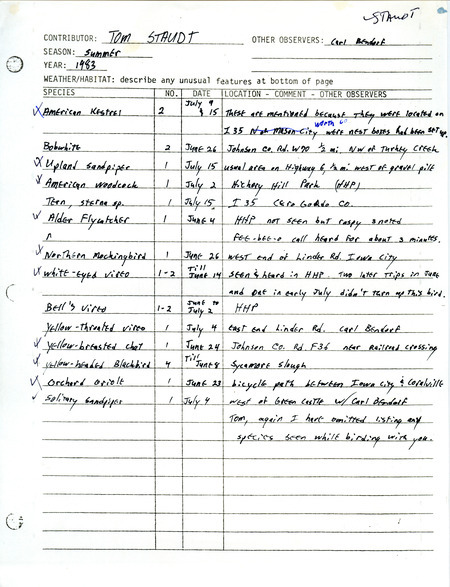 STAUDT
CONTRIBUTOR: TOM STAUDT OTHER OBSERVERS: Carl Bendorf
SEASON: Summer
YEAR: 1983
WEATHER/HABITAT: describe any unusual features at bottom of page
SPECIES NO. DATE LOCATION - COMMENT - OTHER OBSERVERS
American Kestrel 2 July 9 & 15 These are mentioned because they were located on
I 35 N of Mason City where nest boxes had been set up.
Bobwhite 2 June 26 Johnson Co. Rd. W90 ½ mi. NW of Turkey Creek
Upland Sandpiper 1 July 15 usual area on Highway 6, ½ mi west of gravel pit
American Woodcock 1 July 2 Hickory Hill Park (HHP)
Tern, sterna sp. 1 July 15 I 35 Cerro Gordo Co.
Alder Flycatcher 1 June 4 HHP not seen but raspy 3 noted
fee-bee-o call heard for about 3 minutes.
Northern Mockingbird 1 June 26 west end of Linder Rd. Iowa City
White-eyed Vireo 1-2 Till June 14 seen & heard in HHP. Two later trips in June
and out in early July didn't turn up this bird.
Bell's Vireo 1-2 June to July 2 HHP
Yellow-throated vireo 1 July 4 east end Linder Rd. Carl Bendorf
Yellow-breasted chat 1 June 24 Johnson Co. Rd. F36 near railroad crossing
Yellow-headed Blackbird 4 Till June 8 Sycamore Slough
Orchard Oriole 1 June 23 bicycle path between Iowa City & Coralville
Solitary Sandpiper 1 July 4 west of Green Castle w/ Carl Bendorf
Tom, again I have omitted listing any
species seen whilt birding with you.